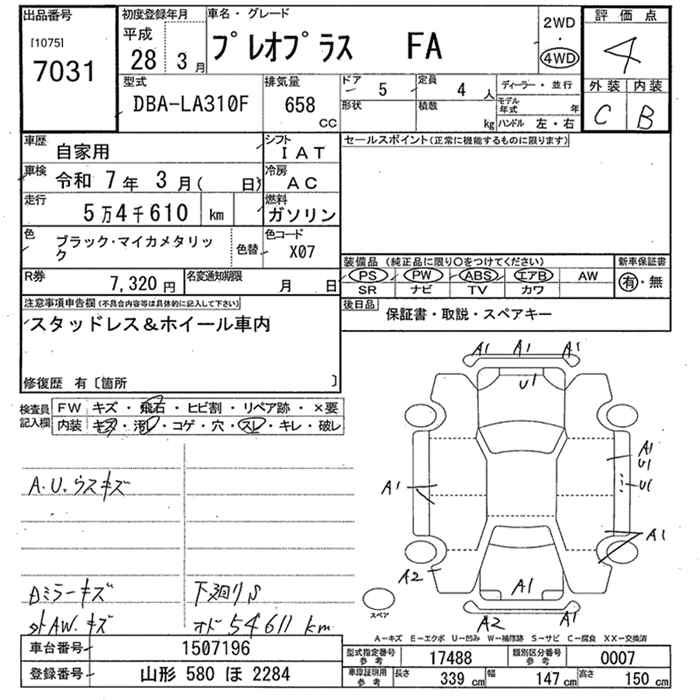 出品番号
[1075]
7031
初度登録年月
平成
28 3月
車名・グレード
プレオプラス FA
2WD
・
4WD
評価点
4
外装 内装
C B
型式
DBA-LA310F
排気量
658
CC
ドア
5
定員
4 人
形状
積載
kg
ディーラー・並行
モデル年式 年
ハンドル 左・右
車歴
自家用
シフト
IAT
車検
令和 7年 3月( 日)
冷房
AC
走行
5万4千610 km
燃料
ガソリン
色
ブラック・マイカメタリック
色替
色コード
X07
R券
7,320 円
名変通知期限
月 日
セールスポイント(正常に機能するものに限ります)
装備品(純正品に限り○をつけてください)
PS PW ABS エアB AW
SR ナビ TV カワ
新車保証書
有・無
後日品
保証書・取説・スペアキー
注意事項申告欄(不具合内容等は具体的に記入して下さい)
スタッドレス&ホイール車内
修復歴 有〔箇所 〕
検査員
記入欄
FW キズ・飛石・ヒビ割・リペア跡・×要
内装 キズ・汚レ・コゲ・穴・スレ・キレ・破レ
A.U.ウスキズ
Dミラーキズ
外AW.キズ
下廻りS
オド 54611 km
A1 A1 A1
U1
A1
U1
U1
A1
A1
A2
A1
A2 A1
スペア
A－キズ E－エクボ U－凹み W－補修跡 S－サビ C－腐食 XX－交換済
車台番号
1507196
登録番号
山形 580 ほ 2284
型式指定番号
参考
17488
類別区分番号
参考
0007
車庫証明用
参考
長さ
339 cm
幅
147 cm
高さ
150 cm